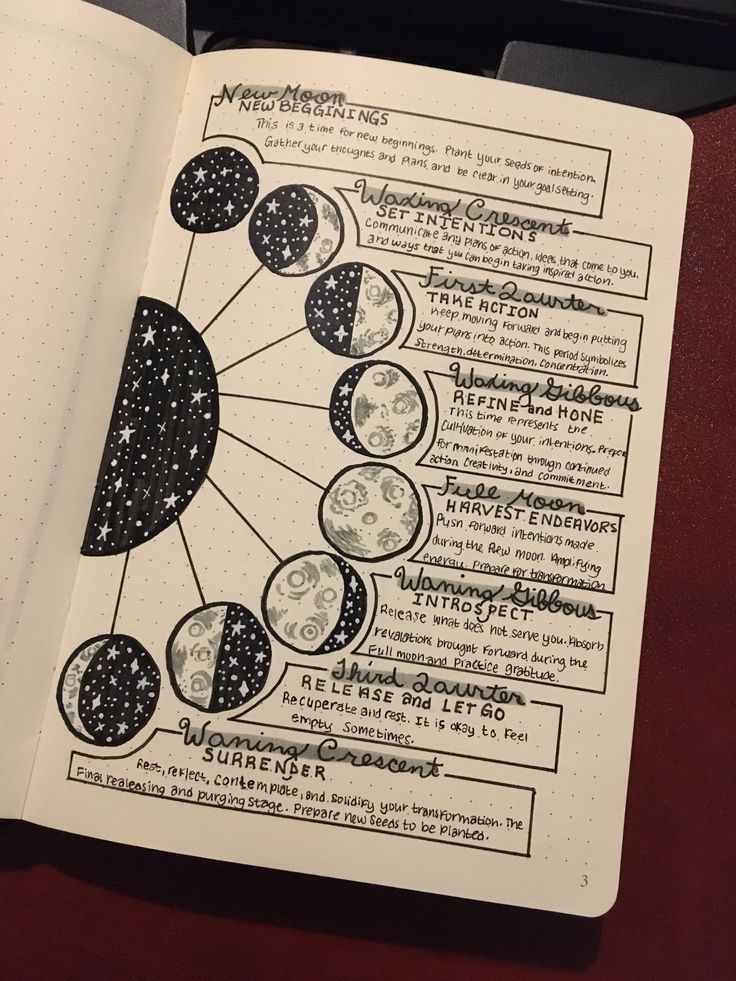 New Moon
NEW BEGGININGS
This is a time for new beginnings. Plant your seeds of intention.
Gather your thoughts and plans, and be clear in your goal setting.
Waxing Crescent
SET INTENTIONS
Communicate any plans of action, ideas that come to you,
and ways that you can begin taking inspired action.
First Qaurter
TAKE ACTION
Keep moving forward and begin putting
your plans into action. This period symbolizes
strength, determination, concentration.
Waxing Gibbous
REFINE and HONE
This time represents the
cultivation of your intentions. Prepare
for manifestation through continued
action, creativity, and commitment.
Full Moon
HARVEST ENDEAVORS
Push forward intentions made
during the new moon. Amplifying
energy. Prepare for transformation
Waning Gibbous
INTROSPECT
Release what does not serve you. Absorb
revalations brought forward during the
Full moon and practice gratitude.
Third Qaurter
RELEASE and LET GO
Recuperate and rest. It is okay to feel
empty sometimes.
Waning Crescent
SURRENDER
Rest, reflect, contemplate, and solidify your transformation. The
final realeasing and purging stage. Prepare new seeds to be planted.
3